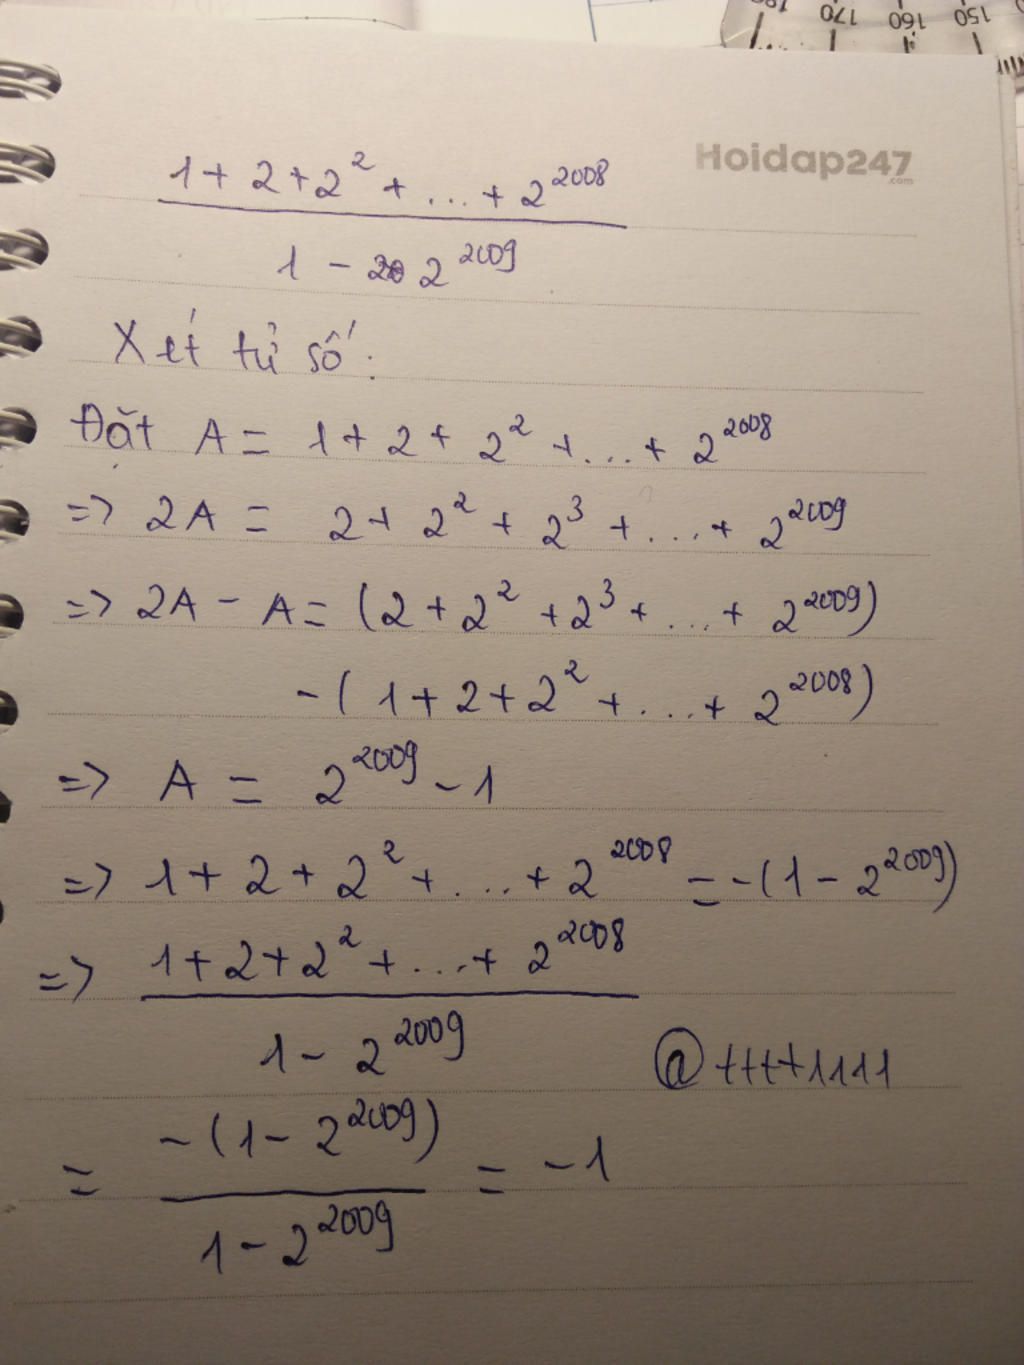 180 170 160 150
Hoidap247
.com
1 + 2 + 2^2 + ... + 2^2008
1 - 2^2009
Xét tử số:
Đặt A = 1 + 2 + 2^2 + ... + 2^2008
=> 2A = 2 + 2^2 + 2^3 + ... + 2^2009
=> 2A - A = (2 + 2^2 + 2^3 + ... + 2^2009)
- (1 + 2 + 2^2 + ... + 2^2008)
=> A = 2^2009 - 1
=> 1 + 2 + 2^2 + ... + 2^2008 = -(1 - 2^2009)
=> 1 + 2 + 2^2 + ... + 2^2008
1 - 2^2009
@ tttt1111
= -(1 - 2^2009) = -1
1 - 2^2009